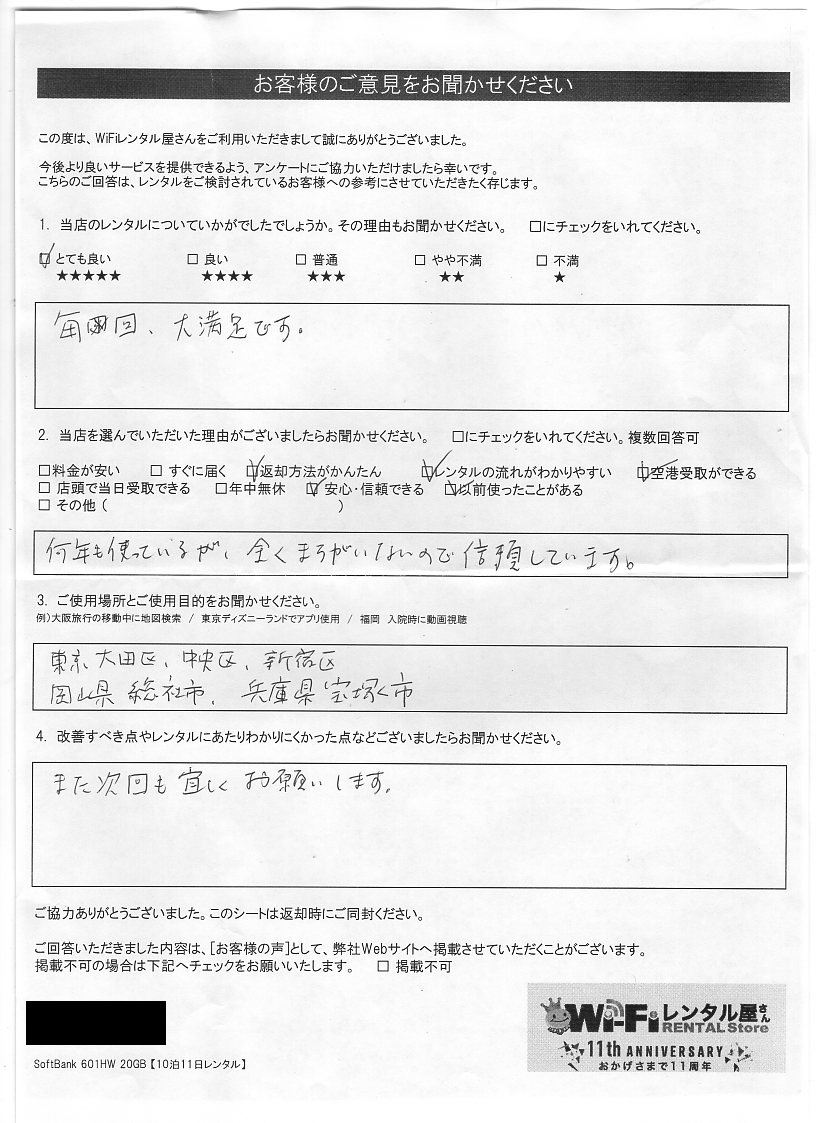 お客様のご意見をお聞かせください
この度は、WiFiレンタル屋さんをご利用いただきまして誠にありがとうございました。
今後より良いサービスを提供できるよう、アンケートにご協力いただけましたら幸いです。
こちらのご回答は、レンタルをご検討されているお客様への参考にさせていただきたく存じます。
1. 当店のレンタルについていかがでしたでしょうか。その理由もお聞かせください。 □にチェックをいれてください。
☑ とても良い □ 良い □ 普通 □ やや不満 □ 不満
★★★★★ ★★★★ ★★★ ★★ ★
毎回、大満足です。
2. 当店を選んでいただいた理由がございましたらお聞かせください。 □にチェックをいれてください。複数回答可
□料金が安い □ すぐに届く ☑返却方法がかんたん ☑レンタルの流れがわかりやすい ☑空港受取ができる
□ 店頭で当日受取できる □年中無休 ☑ 安心・信頼できる ☑以前使ったことがある
□ その他 ( )
何年も使っているが、全くまちがいないので信頼しています。
3. ご使用場所とご使用目的をお聞かせください。
例)大阪旅行の移動中に地図検索 / 東京ディズニーランドでアプリ使用 / 福岡 入院時に動画視聴
東京、大田区、中央区、新宿区
岡山県 総社市、兵庫県宝塚市
4. 改善すべき点やレンタルにあたりわかりにくかった点などございましたらお聞かせください。
また次回も宜しくお願いします。
ご協力ありがとうございました。このシートは返却時にご同封ください。
ご回答いただきました内容は、[お客様の声]として、弊社Webサイトへ掲載させていただくことがございます。
掲載不可の場合は下記へチェックをお願いいたします。 □ 掲載不可
Wi-Fiレンタル屋さん
RENTAL Store
11th ANNIVERSARY
おかげさまで11周年
SoftBank 601HW 20GB【10泊11日レンタル】